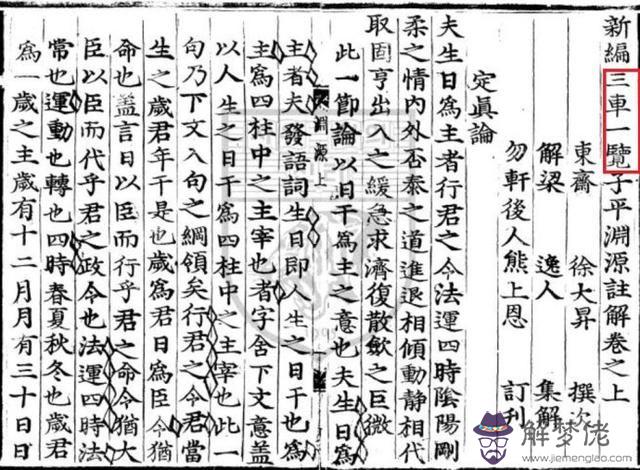 新編三車一覽子平淵源註解卷之上
東齋 徐大昇 撰次
解梁 逸人 集解
勿軒後人熊上恩 訂刊
定眞論
夫生日爲主者行君之令法運四時陰陽剛
柔之情內外否泰之道進退相傾動靜相代
取固亨出入之緩急求濟復散斂之巨微
此一節論以日干爲主之意也夫生日爲
淵源上
主者夫發語詞生日即人生之日干也爲
主爲四柱中之主宰也者字舍下文意蓋
以人生之日干爲四柱中之主宰也此一
句乃下文入句之綱領矣行君之令君當
生之歲君年干是也歲爲君日爲臣令猶
命也盖言日以臣而行乎君之命令猶大
臣以臣而代乎君之政令也法運四時法
常也運動也轉也四時春夏秋冬也歲君
爲一歲之主歲有十二月月有三十日日
解梦佬
http://www.jiemenglao.com/